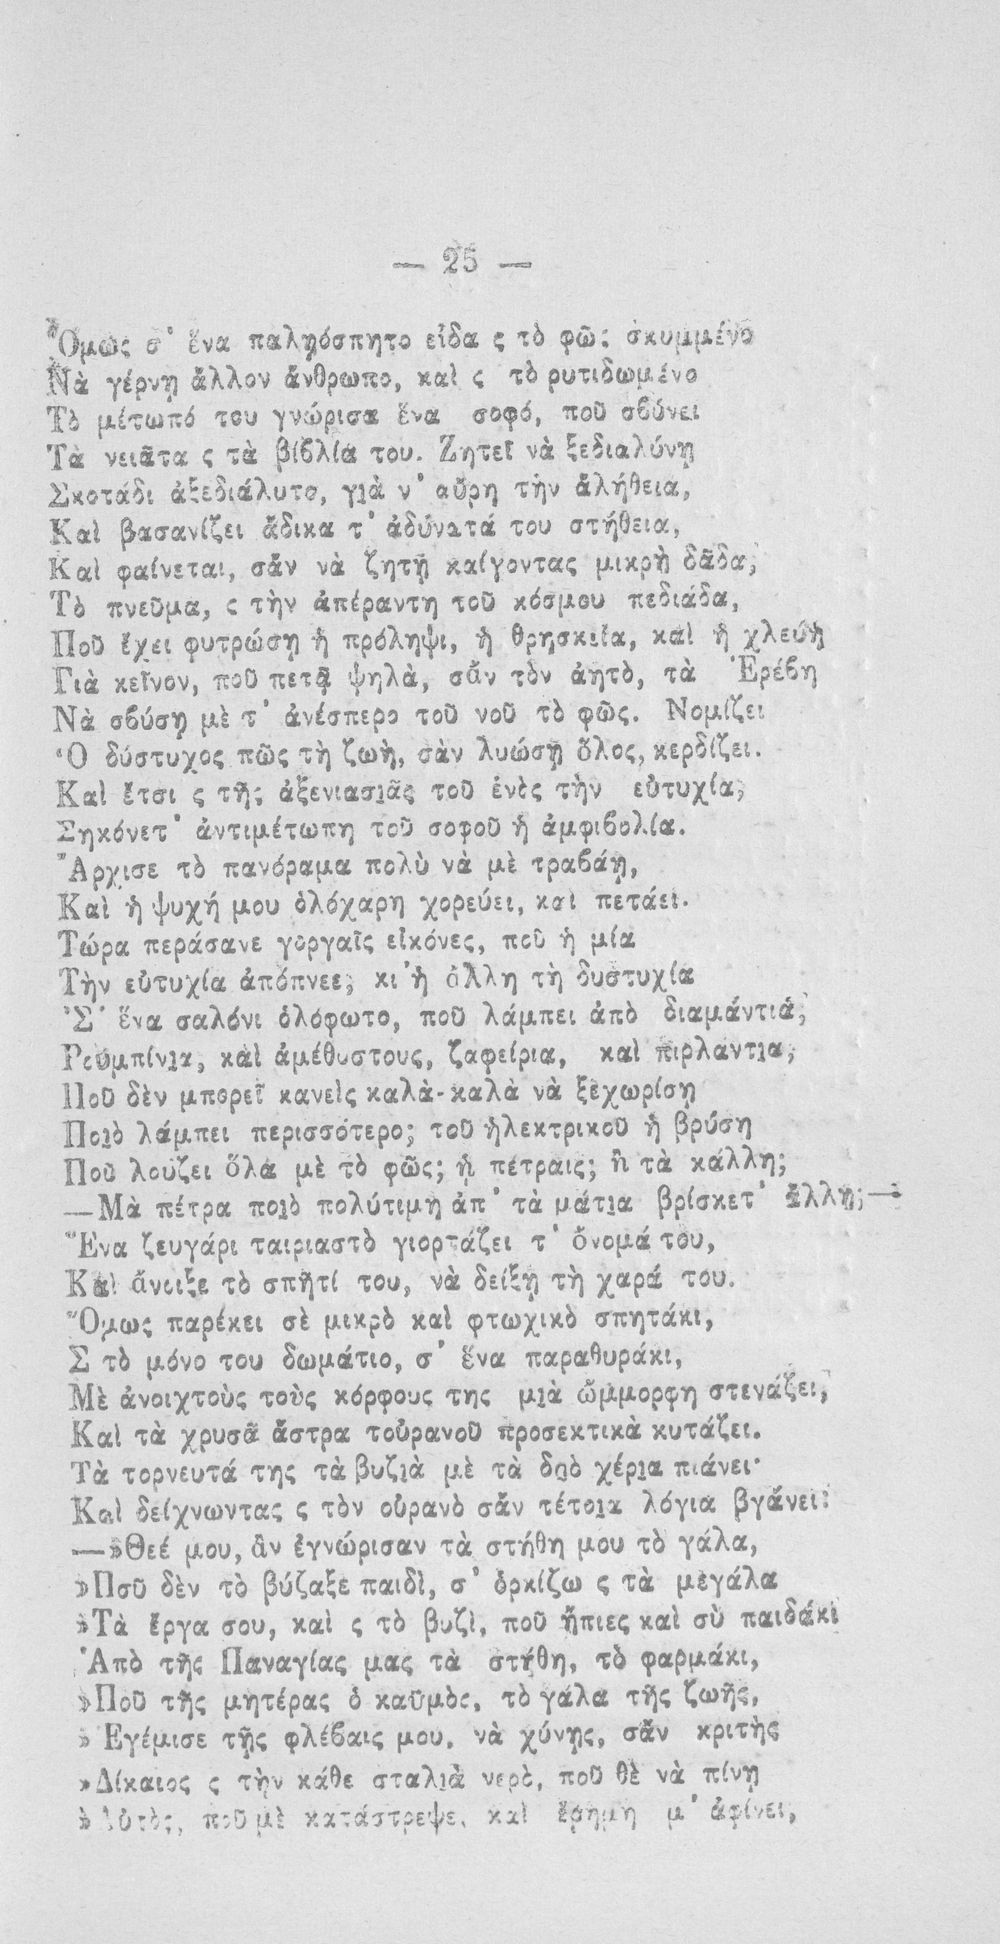 — 25 —
Ὅμως σ' ἕνα παλῃόσπητο εἶδα ς τὸ φῶς σκυμμένο
Νὰ γέρνῃ ἄλλον ἄνθρωπο, καὶ ς τὸ ρυτιδωμένο
Τὸ μέτωπό του γνώρισα ἕνα σοφό, ποῦ σβύνει
Τὰ νειᾶτα ς τὰ βιβλία του. Ζητεῖ νὰ ξεδιαλύνῃ
Σκοτάδι ἀξεδιάλυτο, γιὰ ν' αὔρη τὴν ἀλήθεια,
Καὶ βασανίζει ἄδικα τ' ἀδύνατά του στήθεια,
Καὶ φαίνεται, σἂν νὰ ζητῇ καίγοντας μικρὴ δᾶδα,
Τὸ πνεῦμα, ς τὴν ἀπέραντη τοῦ κόσμου πεδιάδα,
Ποῦ ἔχει φυτρώσῃ ἡ πρόληψι, ἡ θρησκεία, καὶ ἡ χλεύη
Γιὰ κεῖνον, ποῦ πετᾷ ψηλὰ, σἂν τὸν ἀητὸ, τὰ Ἐρέβη
Νὰ σβύσῃ μὲ τ' ἀνέσπερο τοῦ νοῦ τὸ φῶς. Νομίζει
Ὁ δύστυχος πῶς τὴ ζωὴ, σὰν λυώσῃ ὅλος, κερδίζει.
Καὶ ἔτσι ς τῆς ἀξενιασιᾶς τοῦ ἑνὸς τὴν εὐτυχία,
Σηκόνετ' ἀντιμέτωπη τοῦ σοφοῦ ἡ ἀμφιβολία.
Ἄρχισε τὸ πανόραμα πολὺ νὰ μὲ τραβάῃ,
Καὶ ἡ ψυχή μου ὁλόχαρη χορεύει, καὶ πετάει.
Τώρα περάσανε γοργαῖς εἰκόνες, ποῦ ἡ μία
Τὴν εὐτυχία ἀπόπνεε, κι' ἡ ἄλλη τὴ δυστυχία
Σ' ἕνα σαλόνι ὁλόφωτο, ποῦ λάμπει ἀπὸ διαμάντια,
Ρουμπίνια, καὶ ἀμέθυστους, ζαφείρια, καὶ πιρλαντια,
Ποῦ δὲν μπορεῖ κανεὶς καλὰ-καλὰ νὰ ξεχωρίσῃ
Ποιὸ λάμπει περισσότερο; τοῦ ἠλεκτρικοῦ ἡ βρύση
Ποῦ λούζει ὅλα μὲ τὸ φῶς; ᾑ πέτραις; ἢ τὰ κάλλη;
—Μὰ πέτρα ποιὸ πολύτιμη ἀπ' τὰ μάτια βρίσκετ' ἄλλη;—
Ἕνα ζευγάρι ταιριαστὸ γιορτάζει τ' ὄνομά του,
Καὶ ἄνοιξε τὸ σπῆτί του, νὰ δείξῃ τὴ χαρά του.
Ὅμως παρέκει σὲ μικρὸ καὶ φτωχικὸ σπητάκι,
Σ τὸ μόνο του δωμάτιο, σ' ἕνα παραθυράκι,
Μὲ ἀνοιχτοὺς τοὺς κόρφους της μιὰ ὤμμορφη στενάζει,
Καὶ τὰ χρυσᾶ ἄστρα τοὐρανοῦ προσεκτικὰ κυτάζει.
Τὰ τορνευτά της τὰ βυζιὰ μὲ τὰ δυὸ χέρια πιάνει·
Καὶ δείχνωντας ς τὸν οὐρανὸ σἂν τέτοια λόγια βγάνει:
—»Θεέ μου, ἂν ἐγνώρισαν τὰ στήθη μου τὸ γάλα,
»Ποῦ δὲν τὸ βύζαξε παιδὶ, σ' ὁρκίζω ς τὰ μεγάλα
»Τὰ ἔργα σου, καὶ ς τὸ βυζὶ, ποῦ ἤπιες καὶ σὺ παιδάκι
Ἀπὸ τῆς Παναγίας μας τὰ στήθη, τὸ φαρμάκι,
»Ποῦ τῆς μητέρας ὁ καῦμὸς, τὸ γάλα τῆς ζωῆς,
» Ἐγέμισε τῇς φλέβαις μου, νὰ χύνῃς, σἂν κριτὴς
»Δίκαιος ς τὴν κάθε σταλιὰ νερὸ, ποῦ θὲ νὰ πίνῃ
»Αὐτὸς, ποῦ μὲ κατάστρεψε, καὶ ἔρημη μ' ἀφίνει,